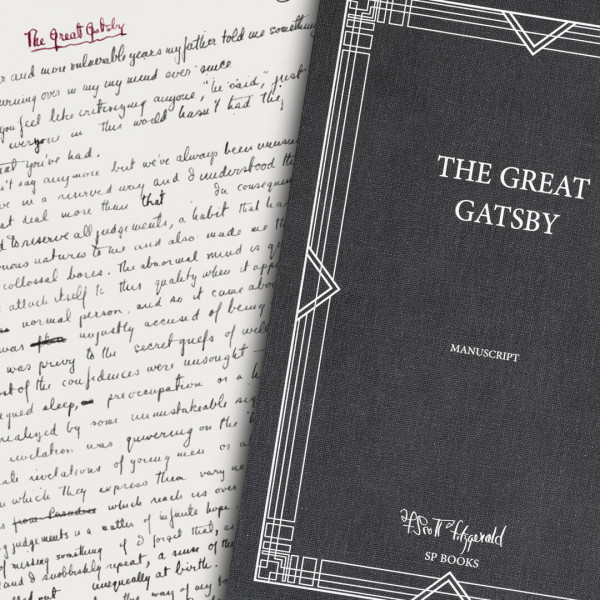 The Great Gatsby
and more vulnerable years my father told me something
turning over in my my mind ever since
you feel like critisizing anyone," he said," just
everyone in this world hasn't had the
that you've had.
say anymore but we've always been
in a reserved way and I understood
deal more than that In
to reserve all judgements, a habit that
natures to me and also made me
collossal bores. The abnormal mind is
attach itself to this quality when it
normal person, and so it came
was unjustly accused of being
was privy to the secret griefs of
of the confidences were unsought
sleep, preoccupation or a
realized by some unmistakeable
revelation was quivering on the
revelations of young men or
in which they express them vary no
from Paradise which reach us over
judgements is a matter of infinite hope
of missing something if I forget that, as
and I snobbishly repeat, a sense of the
out unequally at birth.
this way of my
THE GREAT
GATSBY
MANUSCRIPT
F Scott Fitzgerald
SP BOOKS